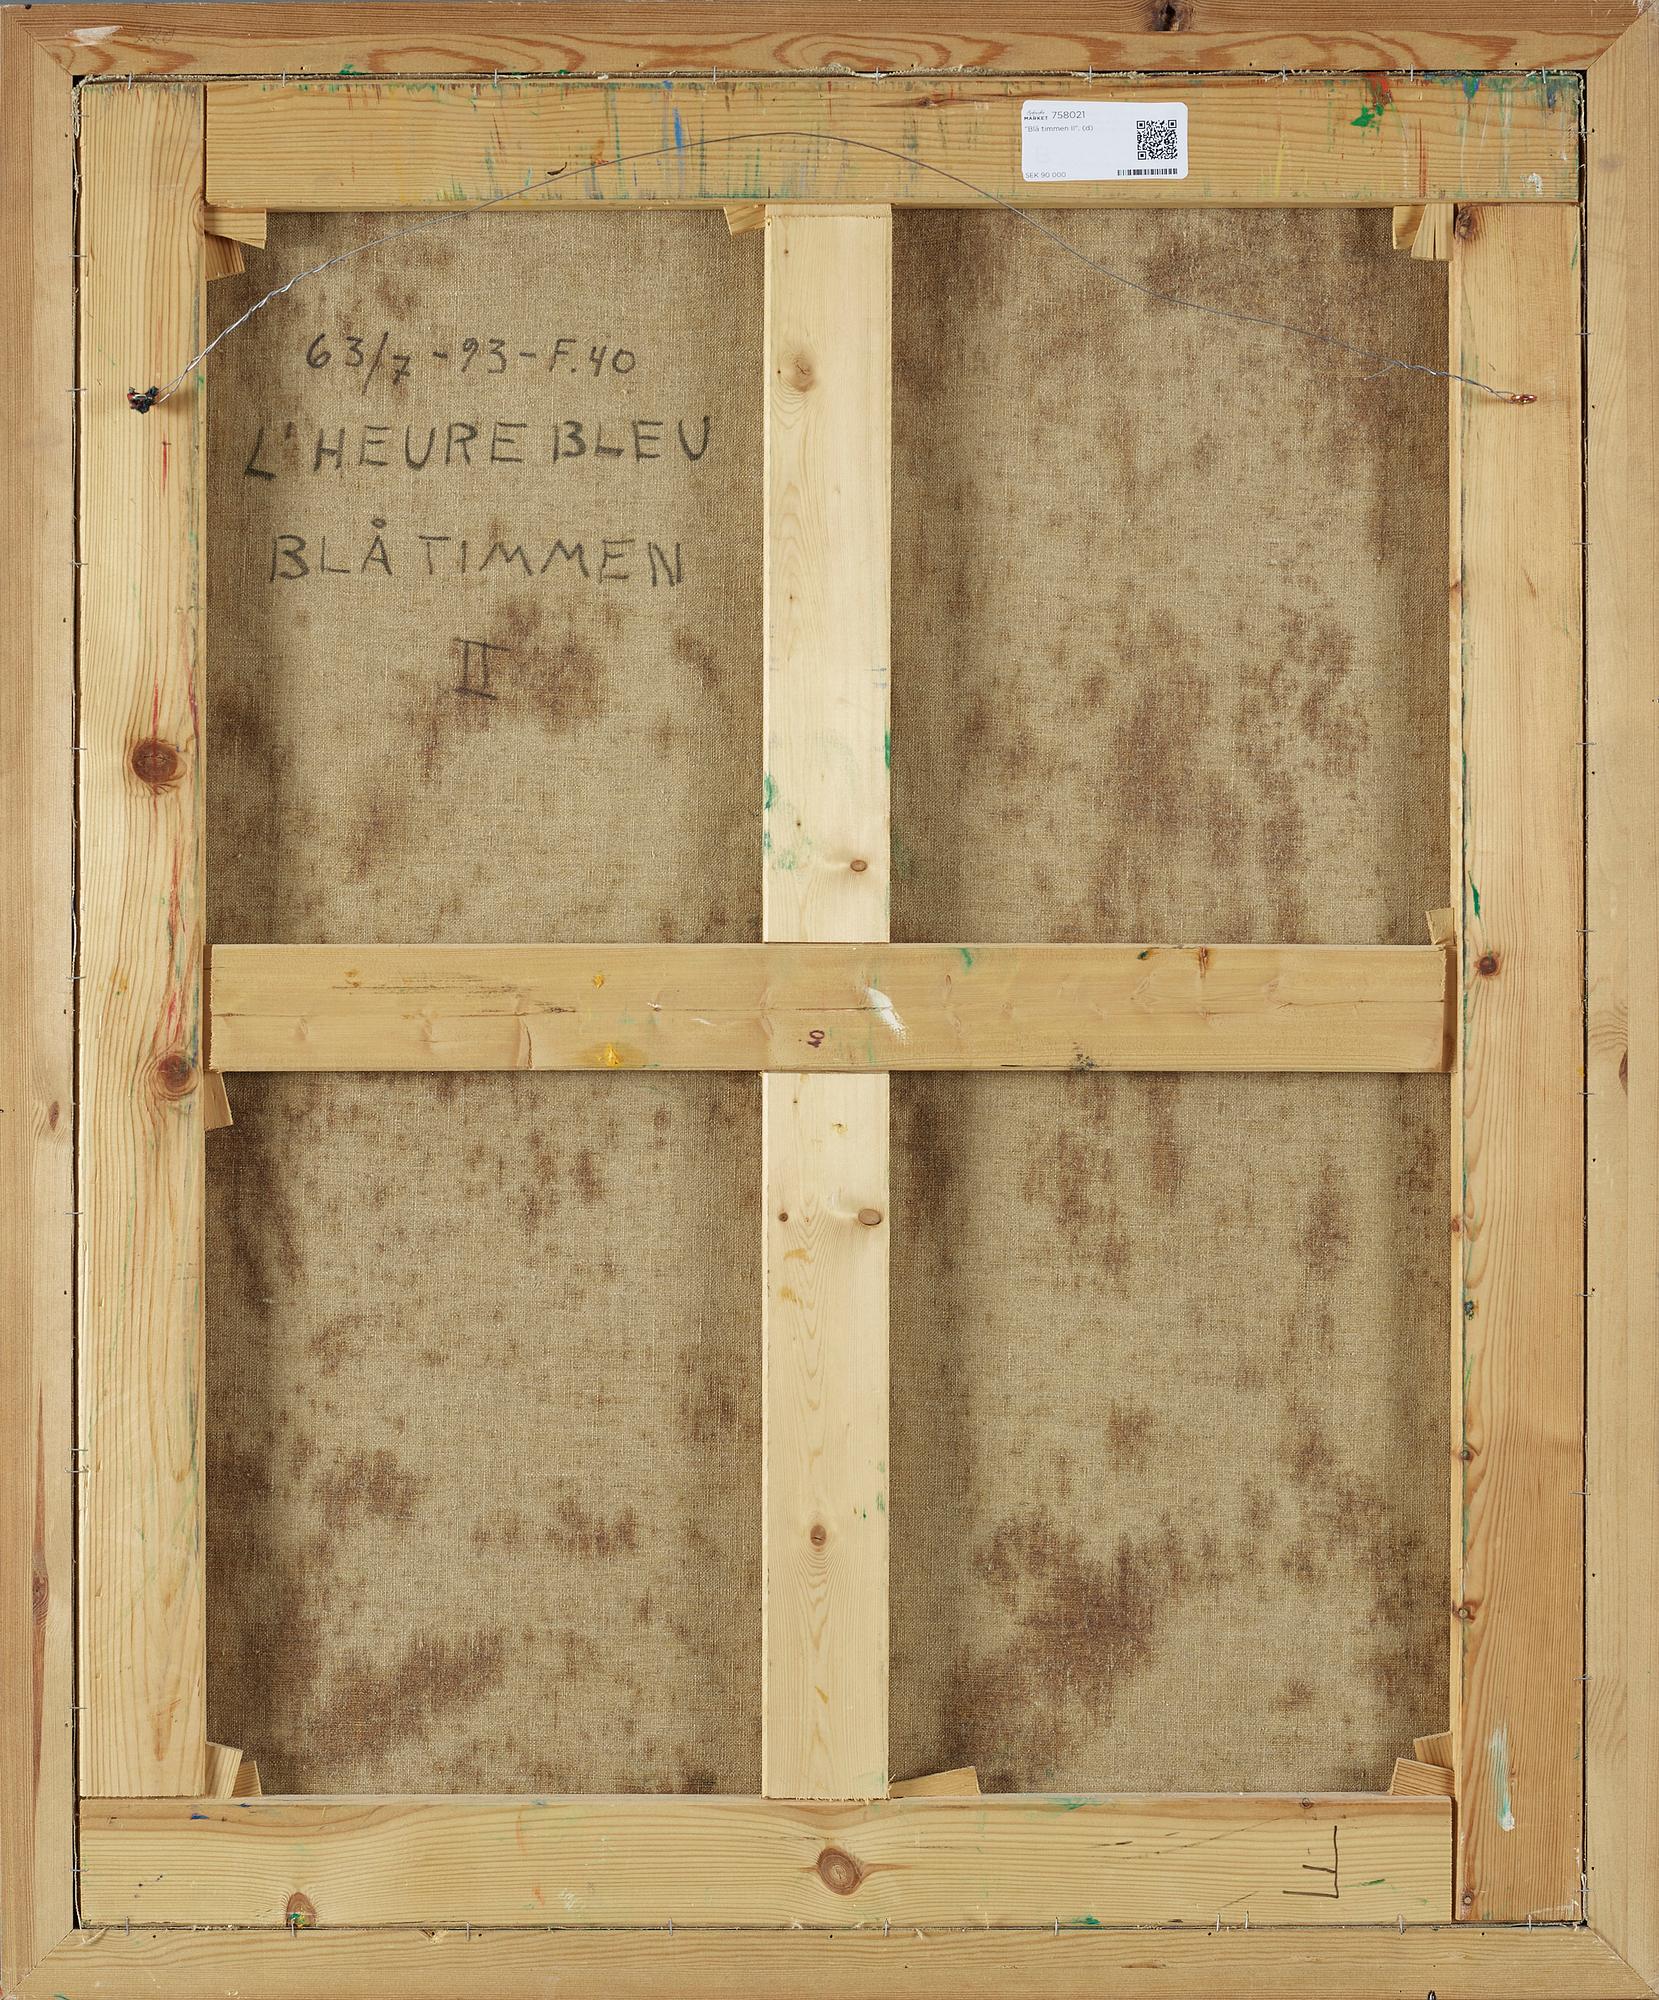 MARKET 758021
"Blå timmen II". (d)
SEK 90 000
63/7 - 93 - F.40
L'HEURE BLEU
BLÅ TIMMEN
II
F